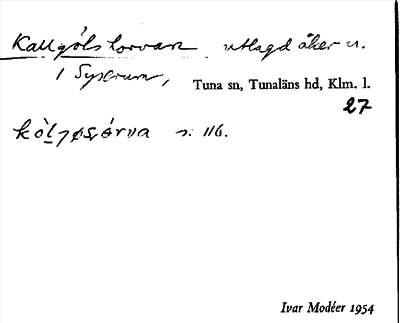 Kallgölshorvan utlagd åker u.
/ Syserum,
Tuna sn, Tunaläns hd, Klm. l.
27
s. 116.
Ivar Modéer 1954